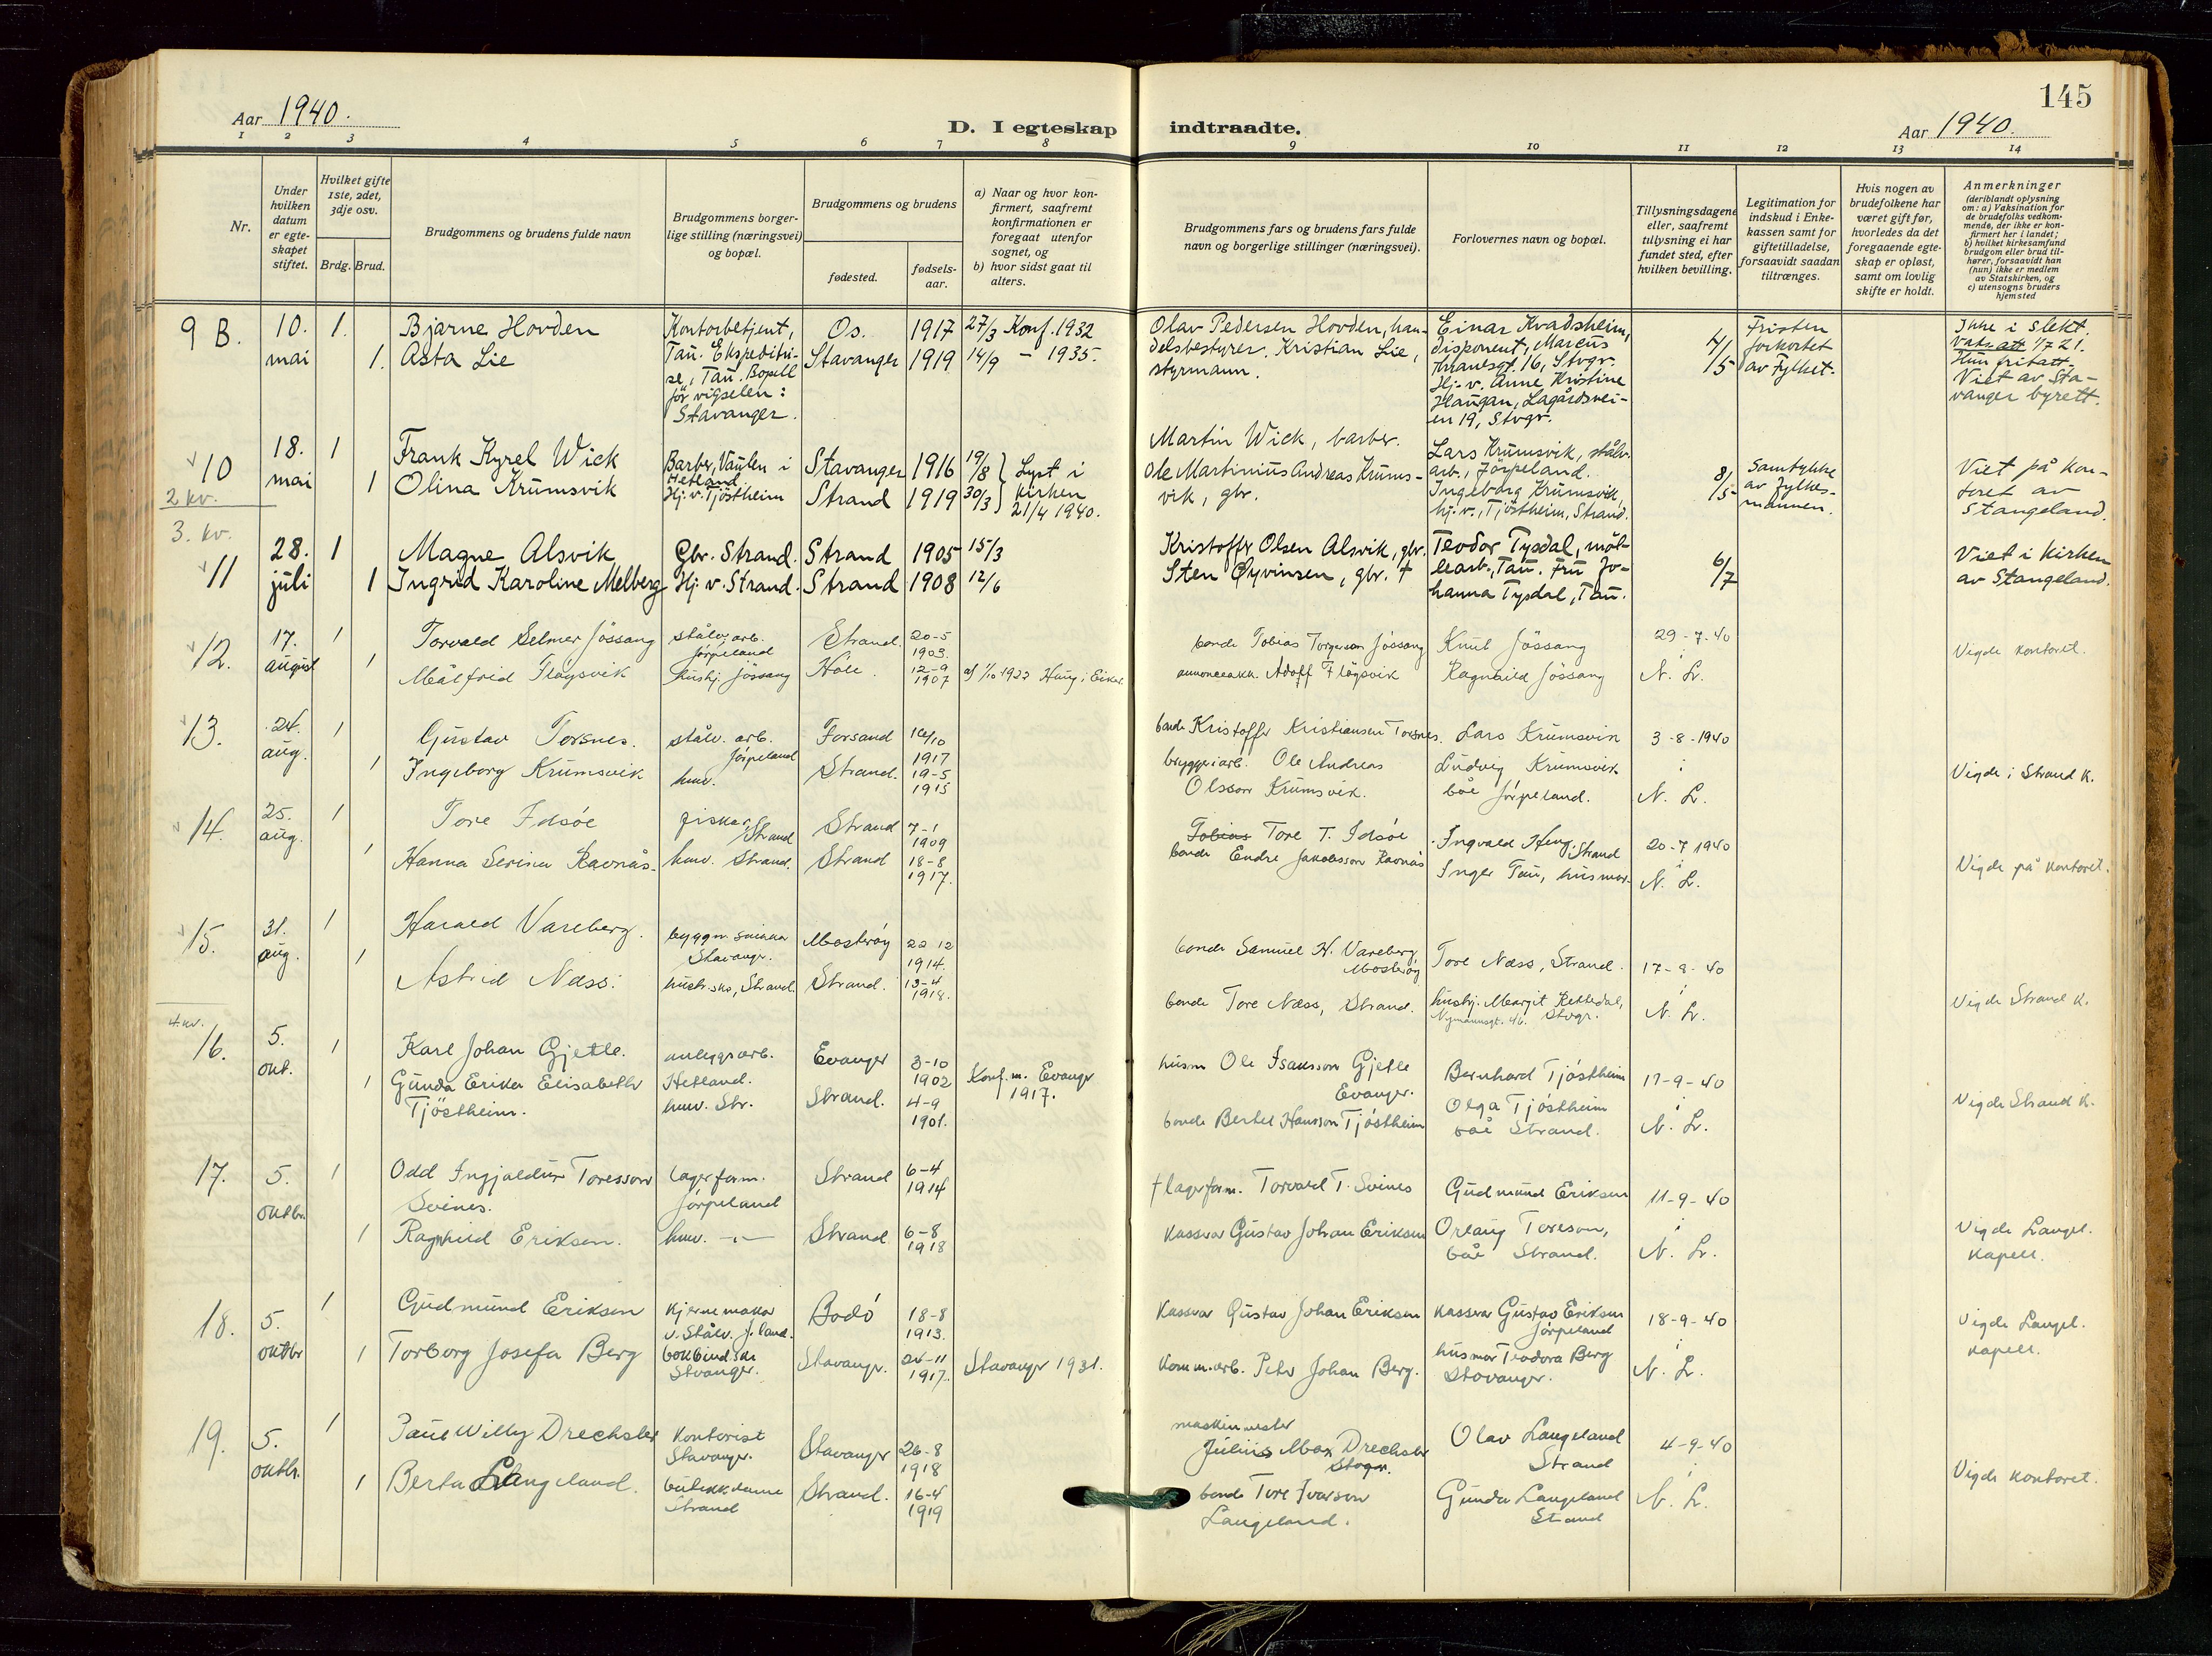 145
Aar 1940.
D. I egteskap indtraadte.
Aar 1940.
1 2 3 4 5 6 7 8 9 10 11 12 13 14
Nr.
Under hvilken datum er egteskapet stiftet.
Hvilket gifte 1ste, 2det, 3dje osv.
Brdg. Brud.
Brudgommens og brudens fulde navn
Brudgommens borgerlige stilling (næringsvei) og bopæl.
Brudgommens og brudens
fødested.
fødselsaar.
a) Naar og hvor konfirmert, saafremt konfirmationen er foregaat utenfor sognet, og
b) hvor sidst gaat til alters.
Brudgommens fars og brudens fars fulde navn og borgerlige stillinger (næringsvei).
Forlovernes navn og bopæl.
Tillysningsdagene eller, saafremt tillysning ei har fundet sted, efter hvilken bevilling.
Legitimation for indskud i Enkekassen samt for giftetilladelse, forsaavidt saadan tiltrænges.
Hvis nogen av brudefolkene har været gift før, hvorledes da det foregaaende egteskap er opløst, samt om lovlig skifte er holdt.
Anmerkninger
(deriblandt oplysning om: a) Vaksination for de brudefolks vedkommende, der ikke er konfirmert her i landet;
b) hvilket kirkesamfund brudgom eller brud tilhører, forsaavidt han (hun) ikke er medlem av Statskirken, og
c) utensogns bruders hjemsted
9 B. 10. mai 1. 1.
Bjarne Hovden
Asta Lie
Kontorbetjent,
Tau. Ekspeditri-
se, Tau. Bopæll
før vigselen:
Stavanger.
Os. 1917 27/3 Konf. 1932
Stavanger 1919 14/9 - 1935.
Olav Pedersen Hovden, han-
delsbestyrer. Kristian Lie,
styrmann.
Einar Kvadsheim,
disponent, Marcus
Thranesgt. 16, Stvgr.
Hj. v. Anne Kristine
Haugan, Lagårdsvei-
en 19, Stvgr.
4/5
Fristen
forkortet
av Fylket.
Ikke i slekt.
Vaks.att 1/7 21.
Hun fritatt.
Viet av Sta-
vanger byrett.
10 18. mai 1 1
2 kv.
Frank Kyrel Wick
Olina Krumsvik
Barber, Vaulen i
Hetland
Hj. v. Tjöstheim
Stavanger 1916 19/8
Strand 1919 30/3
Lyst i
kirken
21/4 1940.
Martin Wick, barber.
Ole Martinius Andreas Krums-
vik, gbr.
Lars Krumsvik, stålv.
arb., Jörpeland.
Ingeborg Krumsvik,
hj. v., Tjöstheim, Strand.
8/5
Samtykke
av Fylkes-
mannen.
Viet på kon-
toret av
Stangeland.
3. kv.
11 28. juli 1 1
Magne Alsvik
Ingrid Karoline Melberg
Gbr. Strand. Strand 1905 15/3
Hj. v. Strand. Strand 1908 12/6
Kristoffer Olsen Alsvik, gbr.
Sten Øyvinsen, gbr. †
Teodor Tysdal, möb-
learb., Tau. Fru Jo-
hanna Tysdal, Tau.
6/7
Viet i kirken
av Stangeland.
12. 17. august 1 1
Torvald Selmer Jössang
Målfrid Flögsvik
stålv. arb.
Jörpeland
hushj. Jössang
Strand. 20-5 1903.
Hole. 12-9 1907
a) 1/10 1922
bonde Tobias Torgersen Jössang
Adolf Flögsvik
Knut Jössang
Ragnhild Jössang
29-7-40
N. L.
Vigde kontoret.
13. 24. aug. 1 1
Gustav Torsnes.
Ingeborg Krumsvik
stålv. arb.
Jörpeland
hmv.
Forsand 14/10 1917
Strand. 19-5 1915
bonde Kristoffer Kristiansen Torsnes.
bryggeriarb. Ole Andreas
Olsson Krumsvik.
Lars Krumsvik
Ludvig Krumsvik
båe Jörpeland.
3-8-1940
N. L.
Vigde i Strand k.
14. 25. aug. 1 1
Tore Idsöe
Hanna Serina Ravnås.
fisker, Strand
hmv. Strand.
Strand 7-1 1909
Strand 18-8 1917.
Tobias Tore T. Idsöe
bonde Endre Jakobsson Ravnås
Ingvald Heng, Strand
Inger Tau, husmor.
20-7 1940
N. L.
Vigde på kontoret.
15. 31. aug. 1 1
Harald Vareberg.
Astrid Næss.
byggn. snikkar
Stavangr.
hush. sko, Strand.
Mosteröy 22 12 1914.
Strand. 13-4 1918.
bonde Samuel H. Vareberg,
Mosteröy
bonde Tore Næss, Strand.
Tore Næss, Strand.
hushj. Margit Kettedal,
Nymannsgt. 46. Stvgr.
17-8-40
N. L.
Vigde Strand k.
4. kv.
16. 5. okt. 1 1
Karl Johan Gjetle.
Gunda Erika Elisabeth
Tjöstheim.
anleggsarb.
Hetland.
hmv. Str.
Evanger 3-10 1902
Strand. 4-9 1901.
Konf. m. Evangr
1917.
husm Ole Isaksson Gjetle
Evanger.
bonde Bertel Hansson Tjöstheim
Bernhard Tjöstheim
Olga Tjöstheim
båe Strand.
17-9-40
N. L.
Vigde Strand k.
17. 5. oktbr. 1 1
Odd Ingjaldur Toresson
Svines.
Ragnhild Eriksen.
lagerform.
Jörpeland
hmv. -"-
Strand 6-4 1914
Strand 6-8 1918
† lagerform. Torvald T. Svines
Kasserar Gustav Johan Eriksen
Gudmund Eriksen
Orlaug Toreson,
båe Strand.
11-9-40
N. L.
Vigde Langel.
kapell.
18. 5. oktbr 1 1
Gudmund Eriksen
Torborg Josefa Berg
Kjernemakar
v. Stålv. J.land.
bokbind.ske
Stvanger.
Bodö 18-8 1913.
Stavangr. 24-11 1917.
Stavangr 1931.
Kasserar Gustav Johan Eriksen
Komm.arb. Peter Johan Berg.
Kasserar Gustav Eriksen
Jörpeland
husmor Teodora Berg
Stavangr.
18-9-40
N. L.
Vigde Langel.
kapell.
19. 5. oktbr. 1 1
Paul Willy Drechsler
Berta Langeland.
Kontorist
Stavanger.
butikkdame
Strand
Stavanger 26-8 1918
Strand. 16-4 1919
maskinmester
Julius Max Drechsler
Stvgr.
bonde Tore Ivarson
Langeland.
Olav Langeland
Strand
Gunda Langeland
Strand
4-9-40
N. L.
Vigde kontoret.